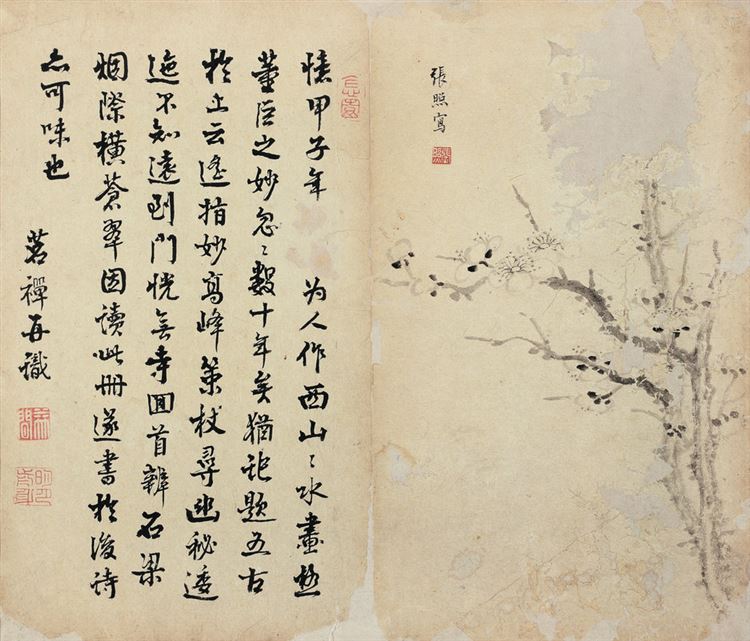 張照寫
憶甲子年 为人作西山〻水畫極
董巨之妙忽〻數十年矣猶記題五古
於上云遙指妙高峰策杖尋幽秘逶
迤不知遠到門恍無寺回首辨石梁
烟際橫蒼翠因讀此冊遂書於後詩
亦可味也
茗禪再識